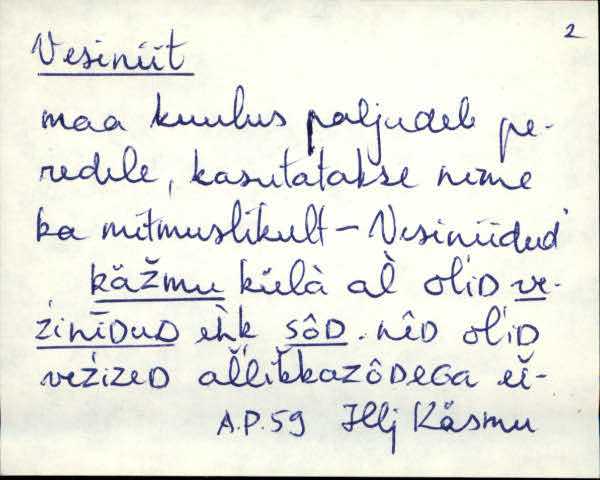 2
Vesiniit
maa kuulus paljudele pe-
redele, kasutatakse nime
ka mitmuslikult – Vesiniidud
kä̆žmu külà al̀ ol'iD ve-
žinīDuD eh̀k sôD. nêD ol'iD
vežizeD al̆l̆ik̆kazôDeGa ei-
A.P.59 Illj Käsmu